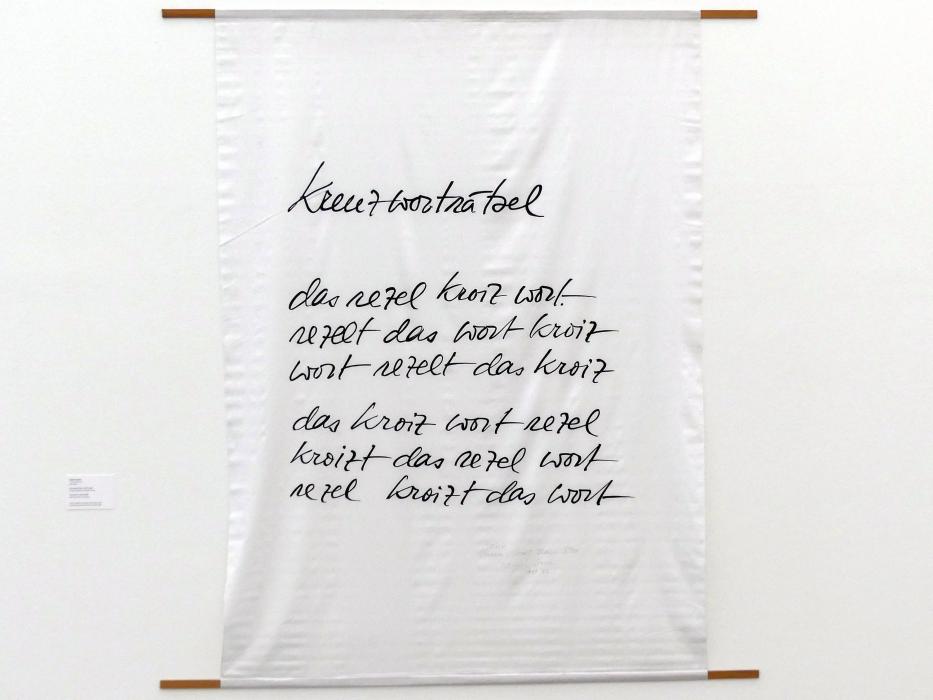 kreuzworträtsel
das rezel kroiz wort
rezelt das wort kroiz
wort rezelt das kroiz
das kroiz wort rezel
kroizt das rezel wort
rezel kroizt das wort